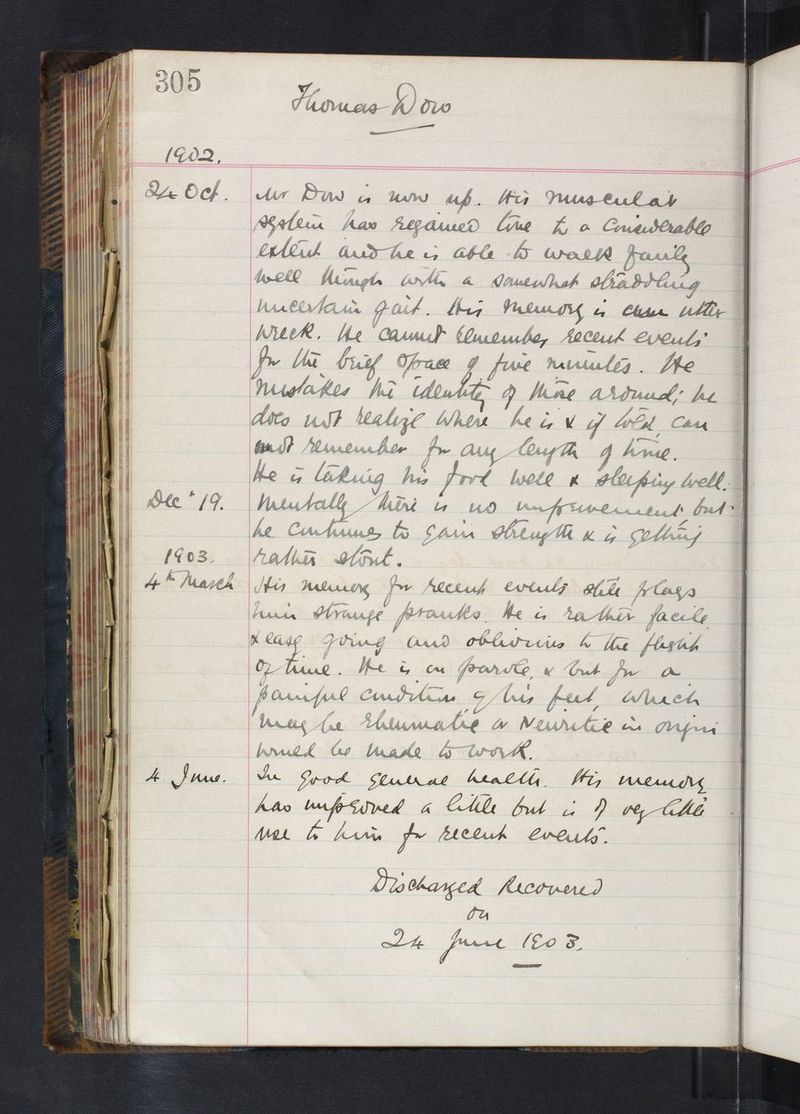 305
Thomas Dow
1902.
24 Oct. Mr Dow is now up. His muscular
system has regained tone to a considerable
extent and he is able to walk fairly
well though with a somewhat straddling
uncertain gait. His memory is an utter
wreck. He cannot remember recent events
for the brief space of five minutes. He
mistakes the identity of those around; he
does not realize where he is & if told can
not remember for any length of time.
He is taking his food well & sleeping well.
Dec 19. Mentally there is no improvement but
he continues to gain strength & is getting
1903. rather stout.
4th March His memory for recent events still plays
him strange pranks. He is rather facile
& easy going and oblivious to the flight
of time. He is on parole, & but for a
painful condition of his feet, which
may be rheumatic or neuritic in origin
would be made to work.
4 June. In good general health. His memory
has improved a little but is of very little
use to him for recent events.
Discharged Recovered
on
24 June 1903.